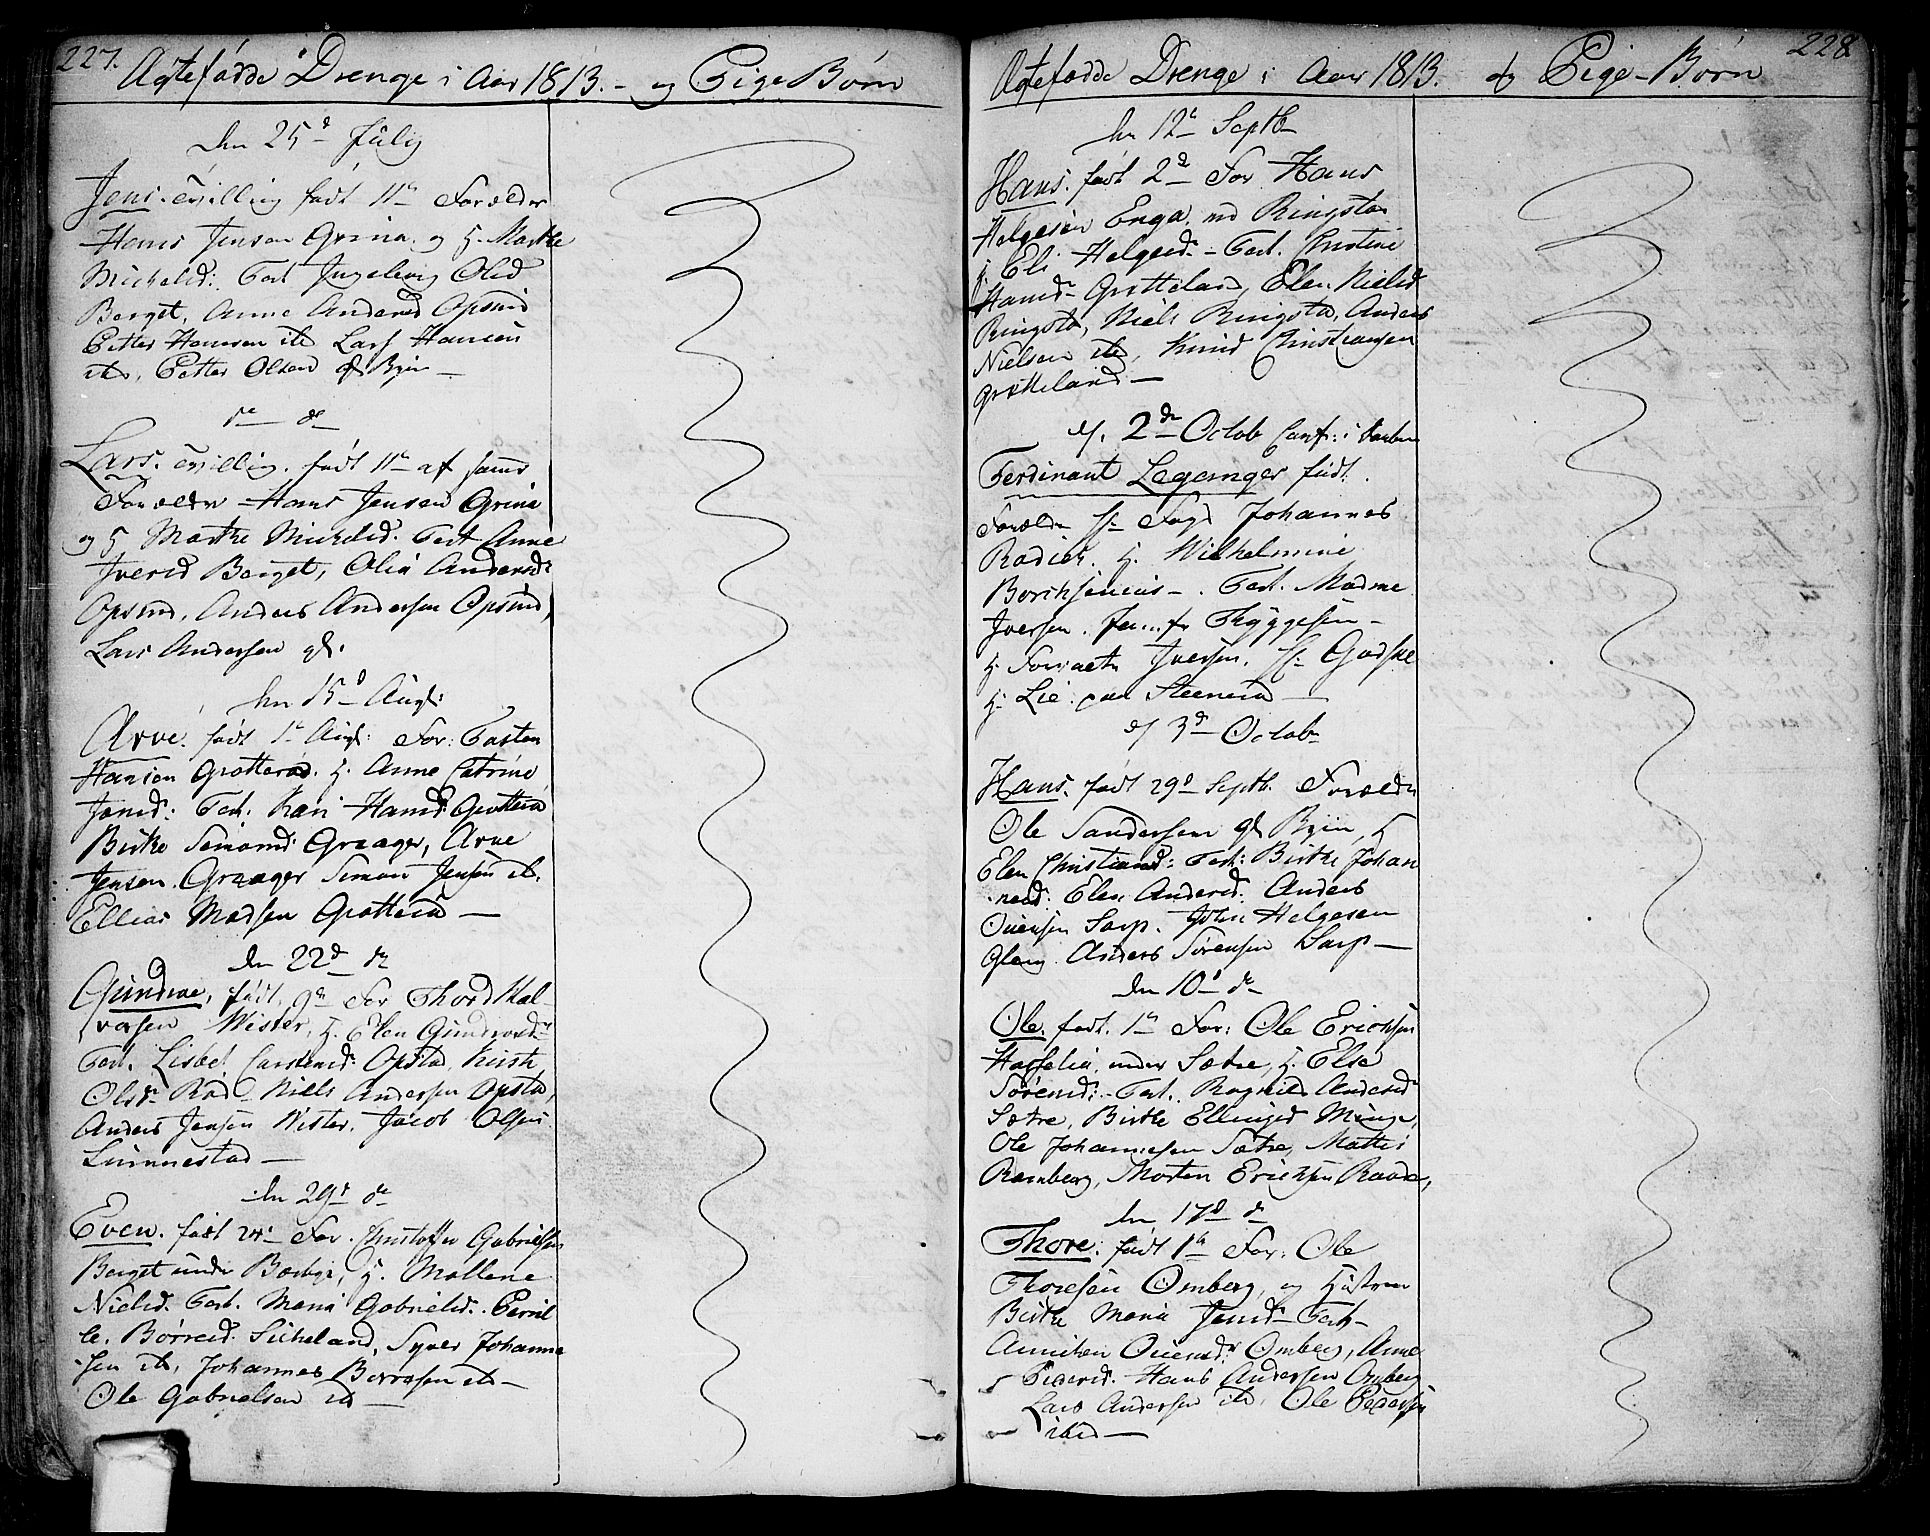 227.
Ægtefødde Drenge i Aar 1813. - og Pige Børn
den 25d July
Jens. Tvilling født 11te Forældre
Hans Jensen Grina og H. Marthe
Michelsd: Test Ingeborg Olsd
Berget, Anne Andersd Opsund
Petter Hansen ibd Lars Hansen
ibd, Petter Olsen Byin
de do
Lars. Tvilling. født 11te af samme
Forældre Hans Jensen Grina
og H Marthe Michelsd. Test Anne
Iversd Berget, Olia Andersd:
Opsund, Anders Andersen Opsund,
Lars Andersen
den 15d Augl:
Arve. født 1te Augl: For: Tosten
Hansen Grotterød. H. Anne Catrine
Jensd: Test. Kari Hansd: Grotterød
Birthe Simonsd Graager, Arve
Jensen Graager Simon Jensen ib.
Ellias Madsen Grotterød
den 22d do
Gundroe, født. 9de For Thord Hal-
vorsen Wister, H. Elen Gundrosd
Test. Lisbet Carstensd: Opstad, Kirsti
Olsd Rød Niels Andersen Opsta,
Anders Jensen Wister, Jacob Olsen
Lunnestad
den 29d do
Even. født 24d For. Christoffer Gabrielsen
Berget under Borbye, H. Mallene
Nielsd. Test. Maria Gabrielsd. Pernil
le. Børresd. Sikeland, Syver Johanne
sen ib, Johannes Børresen ib
Ole Gabrielsen ib
228
Ægtefødde Drenge i Aar 1813. og Pige-Børn
den 12te Septb
Hans. født 2d For Hans
Helgesen Enga nd Ringstad
H. Eli Helgesd. - Test. Christine
Hansd Grøtteland, Elen Nielsd
Ringsta, Niels Ringsta, Anders
Nielsen ibd, Knud Christiansen
Grøtteland
d. 2den Octob Conf: i Kirken
Ferdinant Leganger født
Forældre Hr. Fogd Johannes
Radich. H. Wilhelmine
Borchsenius - Test. Madme
Iversen. Jomfr Thyggesen -
H. Iversen. Hr. Godske
H. Lie paa Steenerød
d 3d Octob
Hans. født 29d Septb. Forældre
Ole Sandersen Byin, H
Elen Christiansd: Test: Birthe Johan
nesd. Elen Andersd: Anders
Ouensen Sarp. John Helgesen
Gleng. Anders Sørensen Sarp
den 10d do
Ole. født. 1te For: Ole Erichsen
Hasselia, under Sætre, H. Else
Sørensd: Test. Ragnild Andersd
Sætre, Birthe Ellingsd Minge,
Ole Johannesen Sætre, Matthi
Ramberg, Morten Erichsen Raade,
den 17d do
Thore. født 1te For: Ole
Thoresen Omberg og Hustrue
Birthe Maria Jensd Test
Anniken Ouensd: Omberg, Anne
Pedersd. Hans Andersen Omberg
Lars Andersen ibd, Ole Pedersen
ibid